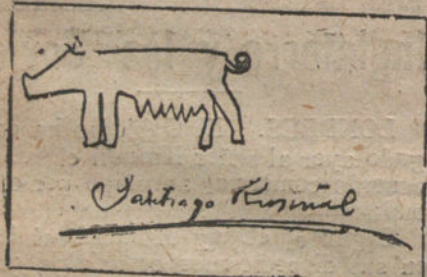 Santiago Rusiñol